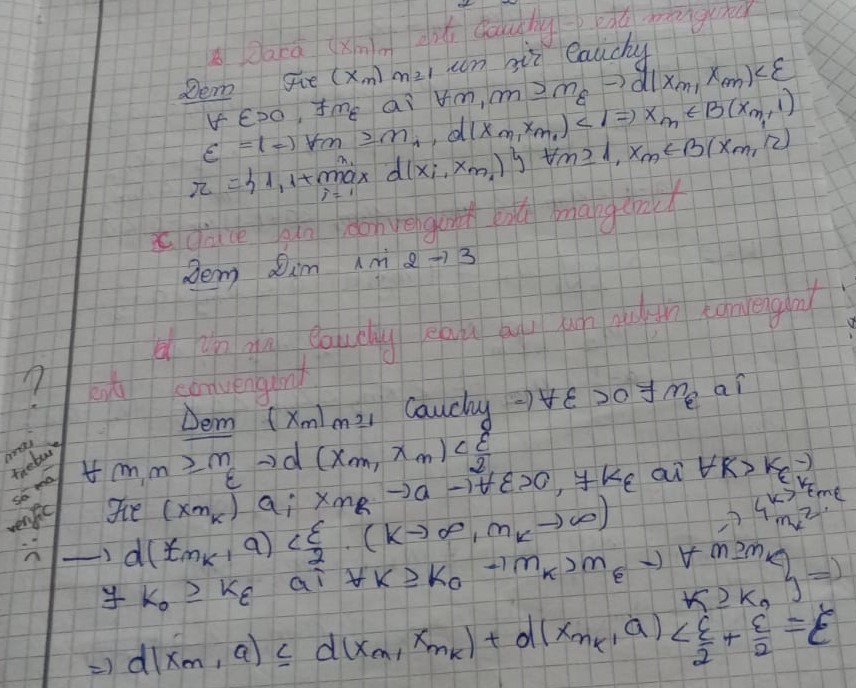 b Dacă (xn)n este Cauchy → este mărginit
Dem Fie (xn) n≥1 un șir Cauchy
∀ ε>0, ∃ nε aî ∀n, m ≥ nε → d(xn, xm)<ε
ε = 1 → ∀n ≥ n1, d(xn, xn1) < 1 => xn ∈ B(xn1, 1)
r = { 1, 1+ max d(xi, xn1) } ∀n≥1, xn ∈ B(xn1, r)
c Orice șir convergent este mărginit
Dem Din 1 și 2 → 3
d Un șir Cauchy care are un subșir convergent
este convergent
Dem (xn)n≥1 Cauchy → ∀ε >0 ∃ nε aî
∀ m,n ≥ nε → d(xn, xm) < ε/2
Fie (xnk) aî xnk → a → ∀ε>0, ∃ kε aî ∀k≥kε
→ d(xnk, a) < ε/2. (k→∞, nk→∞)
∃ k0 ≥ kε aî ∀k ≥ k0 → nk ≥ nε → ∀ n ≥ nk
k ≥ k0
=> d(xn, a) ≤ d(xn, xnk) + d(xnk, a) < ε/2 + ε/2 = ε
?
mai
trebuie
să mă
verific